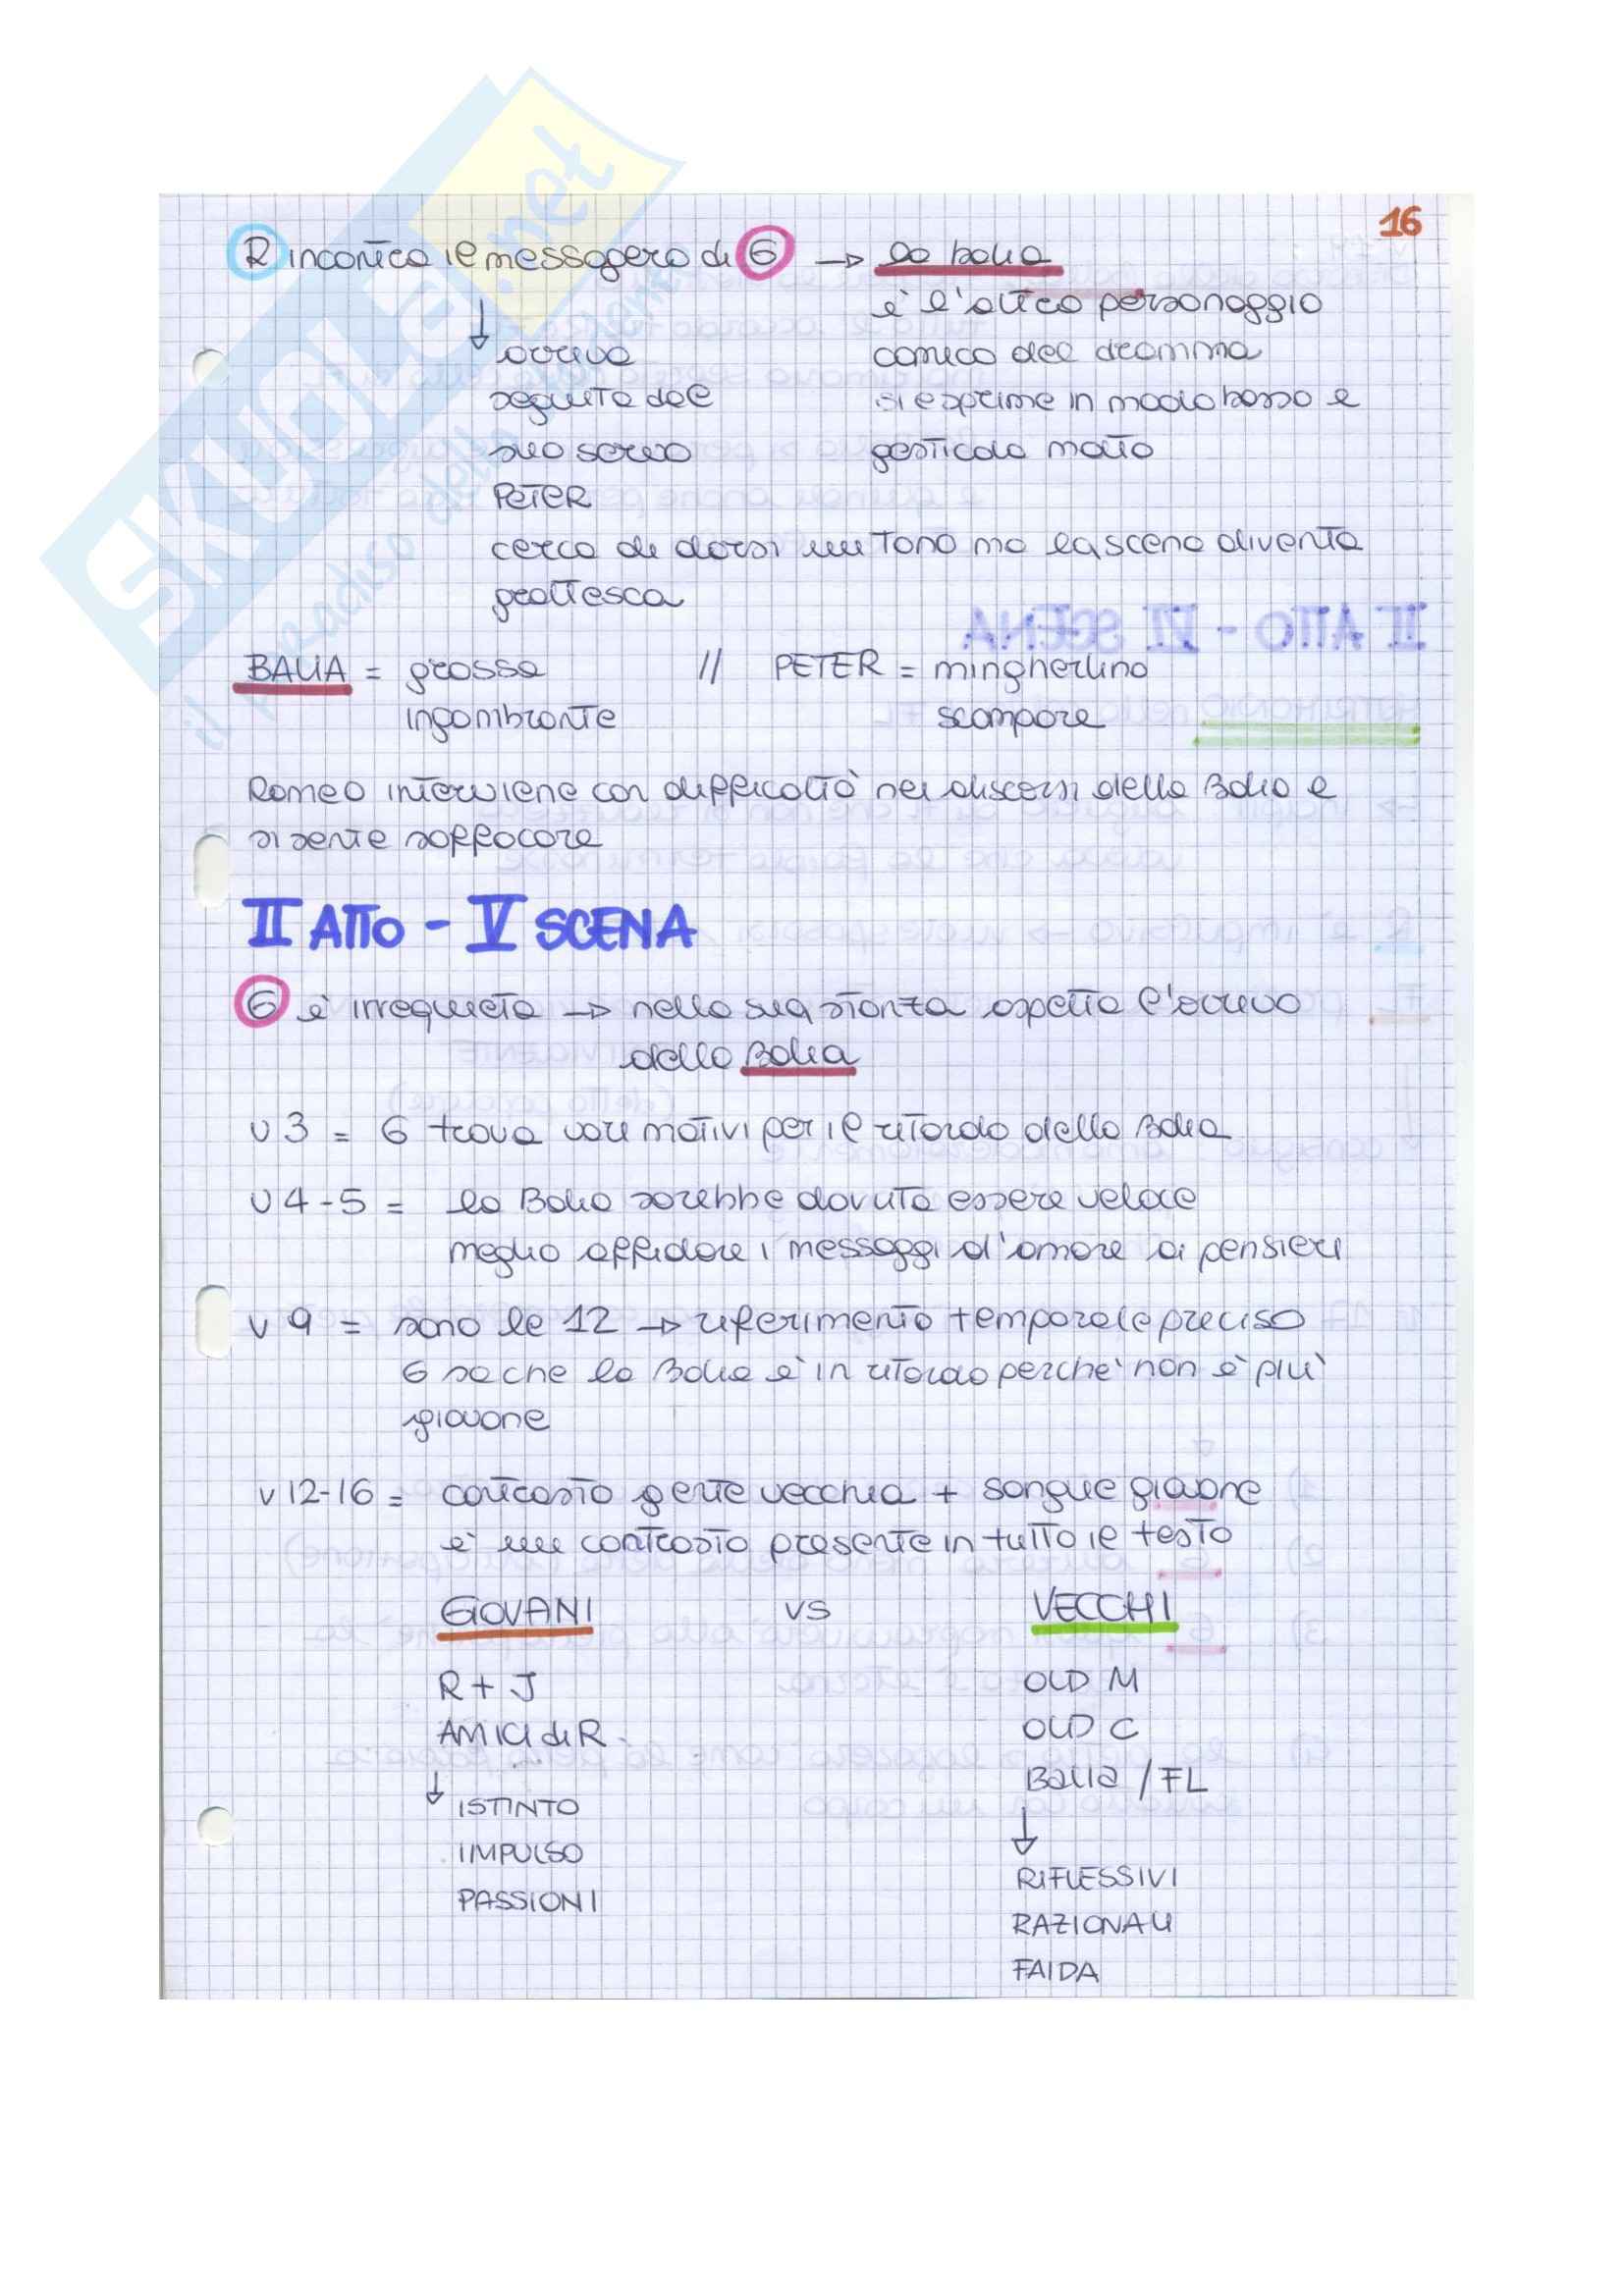 16
R incontra il messaggero di G → la balia
è l'altro personaggio
comico del dramma
si esprime in modo basso e
gesticola molto
↓ arriva
seguita dal
suo servo
PETER
cerca di darsi un tono ma la scena diventa
grottesca
BALIA = grossa // PETER = mingherlino
ingombrante scompare
Romeo interviene con difficoltà nei discorsi della Balia e
si sente soffocare
II ATTO - V SCENA
G è irrequieta → nella sua stanza aspetta l'arrivo
della Balia
v 3 = G trova vari motivi per il ritardo della Balia
v 4-5 = la Balia sarebbe dovuta essere veloce
meglio affidare i messaggi d'amore ai pensieri
v 9 = sono le 12 → riferimento temporale preciso
G sa che la Balia è in ritardo perché non è più
giovane
v 12-16 = contrasto gente vecchia + sangue giovane
è un contrasto presente in tutto il testo
GIOVANI vs VECCHI
R + J OLD M
AMICI di R. OLD C
Balia / FL
↓ ISTINTO
IMPULSO
PASSIONI
↓
RIFLESSIVI
RAZIONALI
FAIDA
SKUOLA.net
il paradiso dello studente